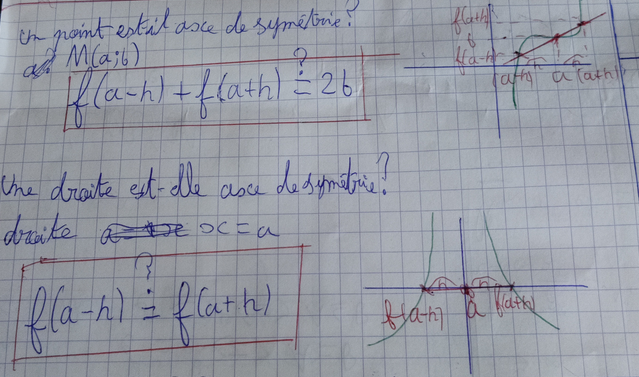 un point est il asce de symétrie?
M(a;b)
f(a-h) + f(a+h) ?= 2b
f(a+h)
b
f(a-h)
(a-h) h a h (a+h)
Une droite est-elle asce de symétrie?
droite x=a
f(a-h) ?= f(a+h)
h h
f(a-h) a f(a+h)